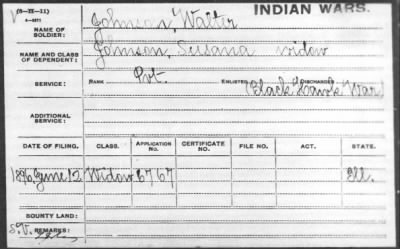 (5-XX-II) INDIAN WARS.
4-2271
NAME OF SOLDIER: Johnson, Walter
NAME AND CLASS OF DEPENDENT: Johnson, Susana widow
SERVICE: RANK Pvt. ENLISTED DISCHARGED (Black Hawk War)
ADDITIONAL SERVICE:
DATE OF FILING. CLASS. APPLICATION No. CERTIFICATE No. FILE NO. ACT. STATE.
1896 June 12 Widow 6767 Ill.
BOUNTY LAND:
S.V. REMARKS: